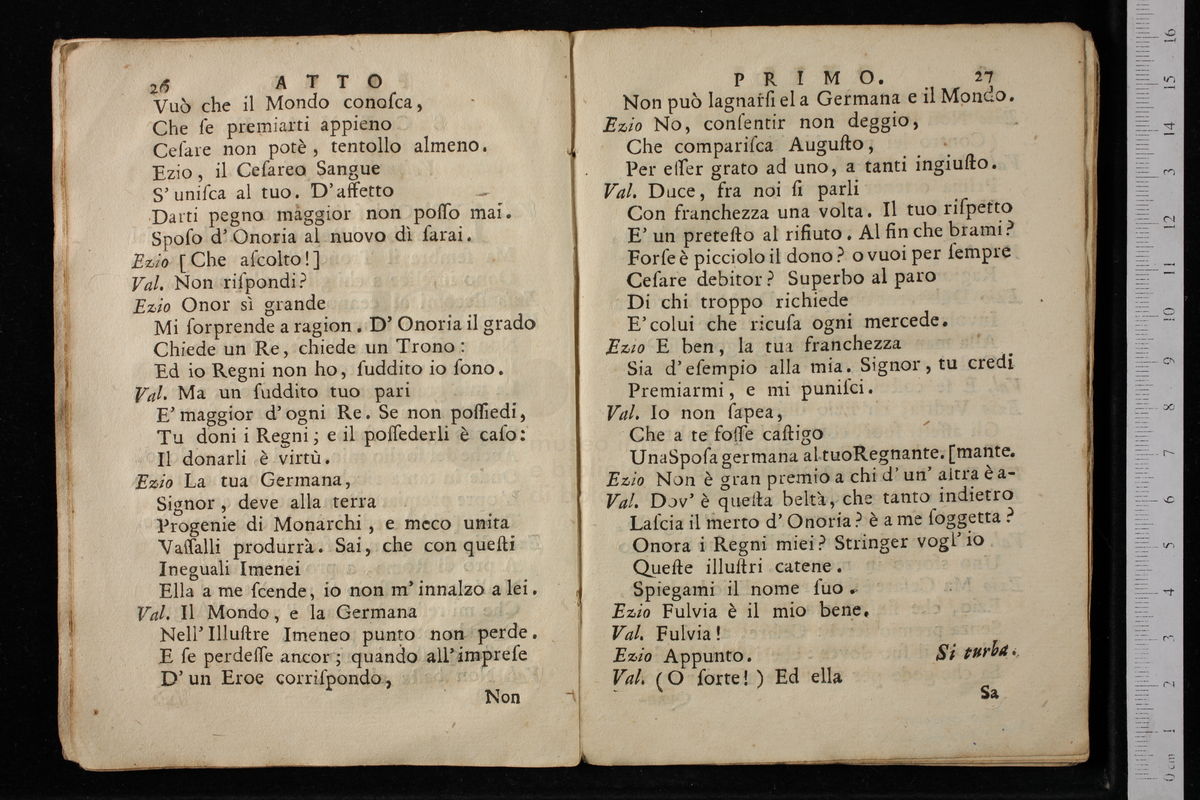 26 ATTO
Vuò che il Mondo conoſca,
Che ſe premiarti appieno
Ceſare non potè, tentollo almeno.
Ezio, il Ceſareo Sangue
S'uniſca al tuo. D'affetto
Darti pegno maggior non poſſo mai.
Spoſo d'Onoria al nuovo dì ſarai.
Ezio [Che aſcolto!]
Val. Non riſpondi?
Ezio Onor sì grande
Mi ſorprende a ragion. D'Onoria il grado
Chiede un Re, chiede un Trono:
Ed io Regni non ho, ſuddito io ſono.
Val. Ma un ſuddito tuo pari
E' maggior d'ogni Re. Se non poſſiedi,
Tu doni i Regni; e il poſſederli è caſo:
Il donarli è virtù.
Ezio La tua Germana,
Signor, deve alla terra
Progenie di Monarchi, e meco unita
Vaſſalli produrrà. Sai, che con queſti
Ineguali Imenei
Ella a me ſcende, io non m'innalzo a lei.
Val. Il Mondo, e la Germana
Nell'Illuſtre Imeneo punto non perde.
E ſe perdeſſe ancor; quando all'impreſe
D'un Eroe corriſpondo,
Non
PRIMO. 27
Non può lagnarſi el a Germana e il Mondo.
Ezio No, conſentir non deggio,
Che compariſca Auguſto,
Per eſſer grato ad uno, a tanti ingiuſto.
Val. Duce, fra noi ſi parli
Con franchezza una volta. Il tuo riſpetto
E' un preteſto al rifiuto. Al fin che brami?
Forſe è picciolo il dono? o vuoi per ſempre
Ceſare debitor? Superbo al paro
Di chi troppo richiede
E' colui che ricuſa ogni mercede.
Ezio E ben, la tua franchezza
Sia d'eſempio alla mia. Signor, tu credi
Premiarmi, e mi puniſci.
Val. Io non ſapea,
Che a te foſſe caſtigo
Una Spoſa germana al tuo Regnante. [mante.
Ezio Non è gran premio a chi d'un'altra è a-
Val. Dov'è queſta beltà, che tanto indietro
Laſcia il merto d'Onoria? è a me ſoggetta?
Onora i Regni miei? Stringer vogl'io
Queſte illuſtri catene.
Spiegami il nome ſuo.
Ezio Fulvia è il mio bene.
Val. Fulvia!
Ezio Appunto. Si turba.
Val. (O ſorte!) Ed ella
Sa